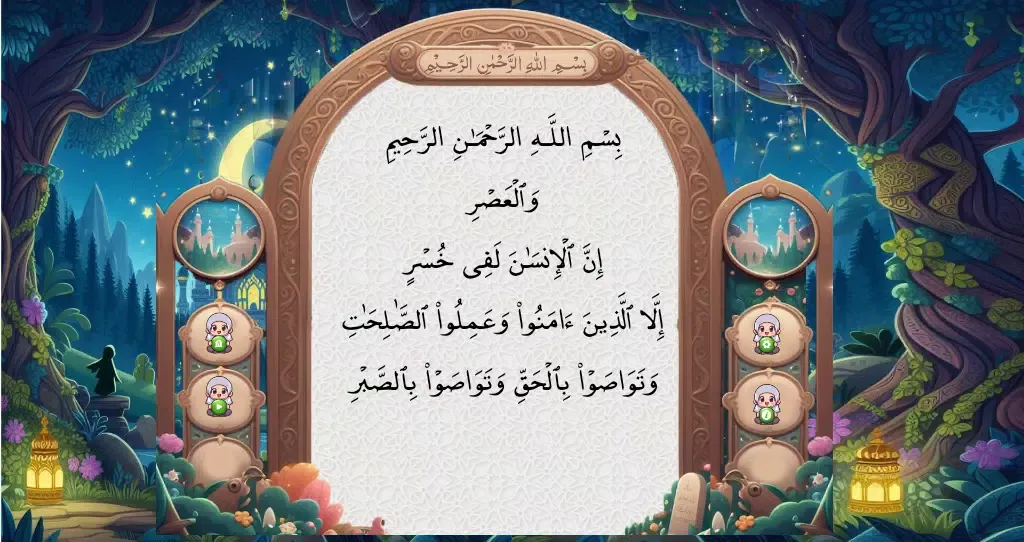 بِسْمِ اللهِ الرَّحْمٰنِ الرَّحِيْمِ
بِسْمِ اللَّـهِ الرَّحْمَـٰنِ الرَّحِيمِ
وَٱلْعَصْرِ
إِنَّ ٱلْإِنسَـٰنَ لَفِى خُسْرٍ
إِلَّا ٱلَّذِينَ ءَامَنُوا۟ وَعَمِلُوا۟ ٱلصَّـٰلِحَـٰتِ
وَتَوَاصَوْا۟ بِٱلْحَقِّ وَتَوَاصَوْا۟ بِٱلصَّبْرِ